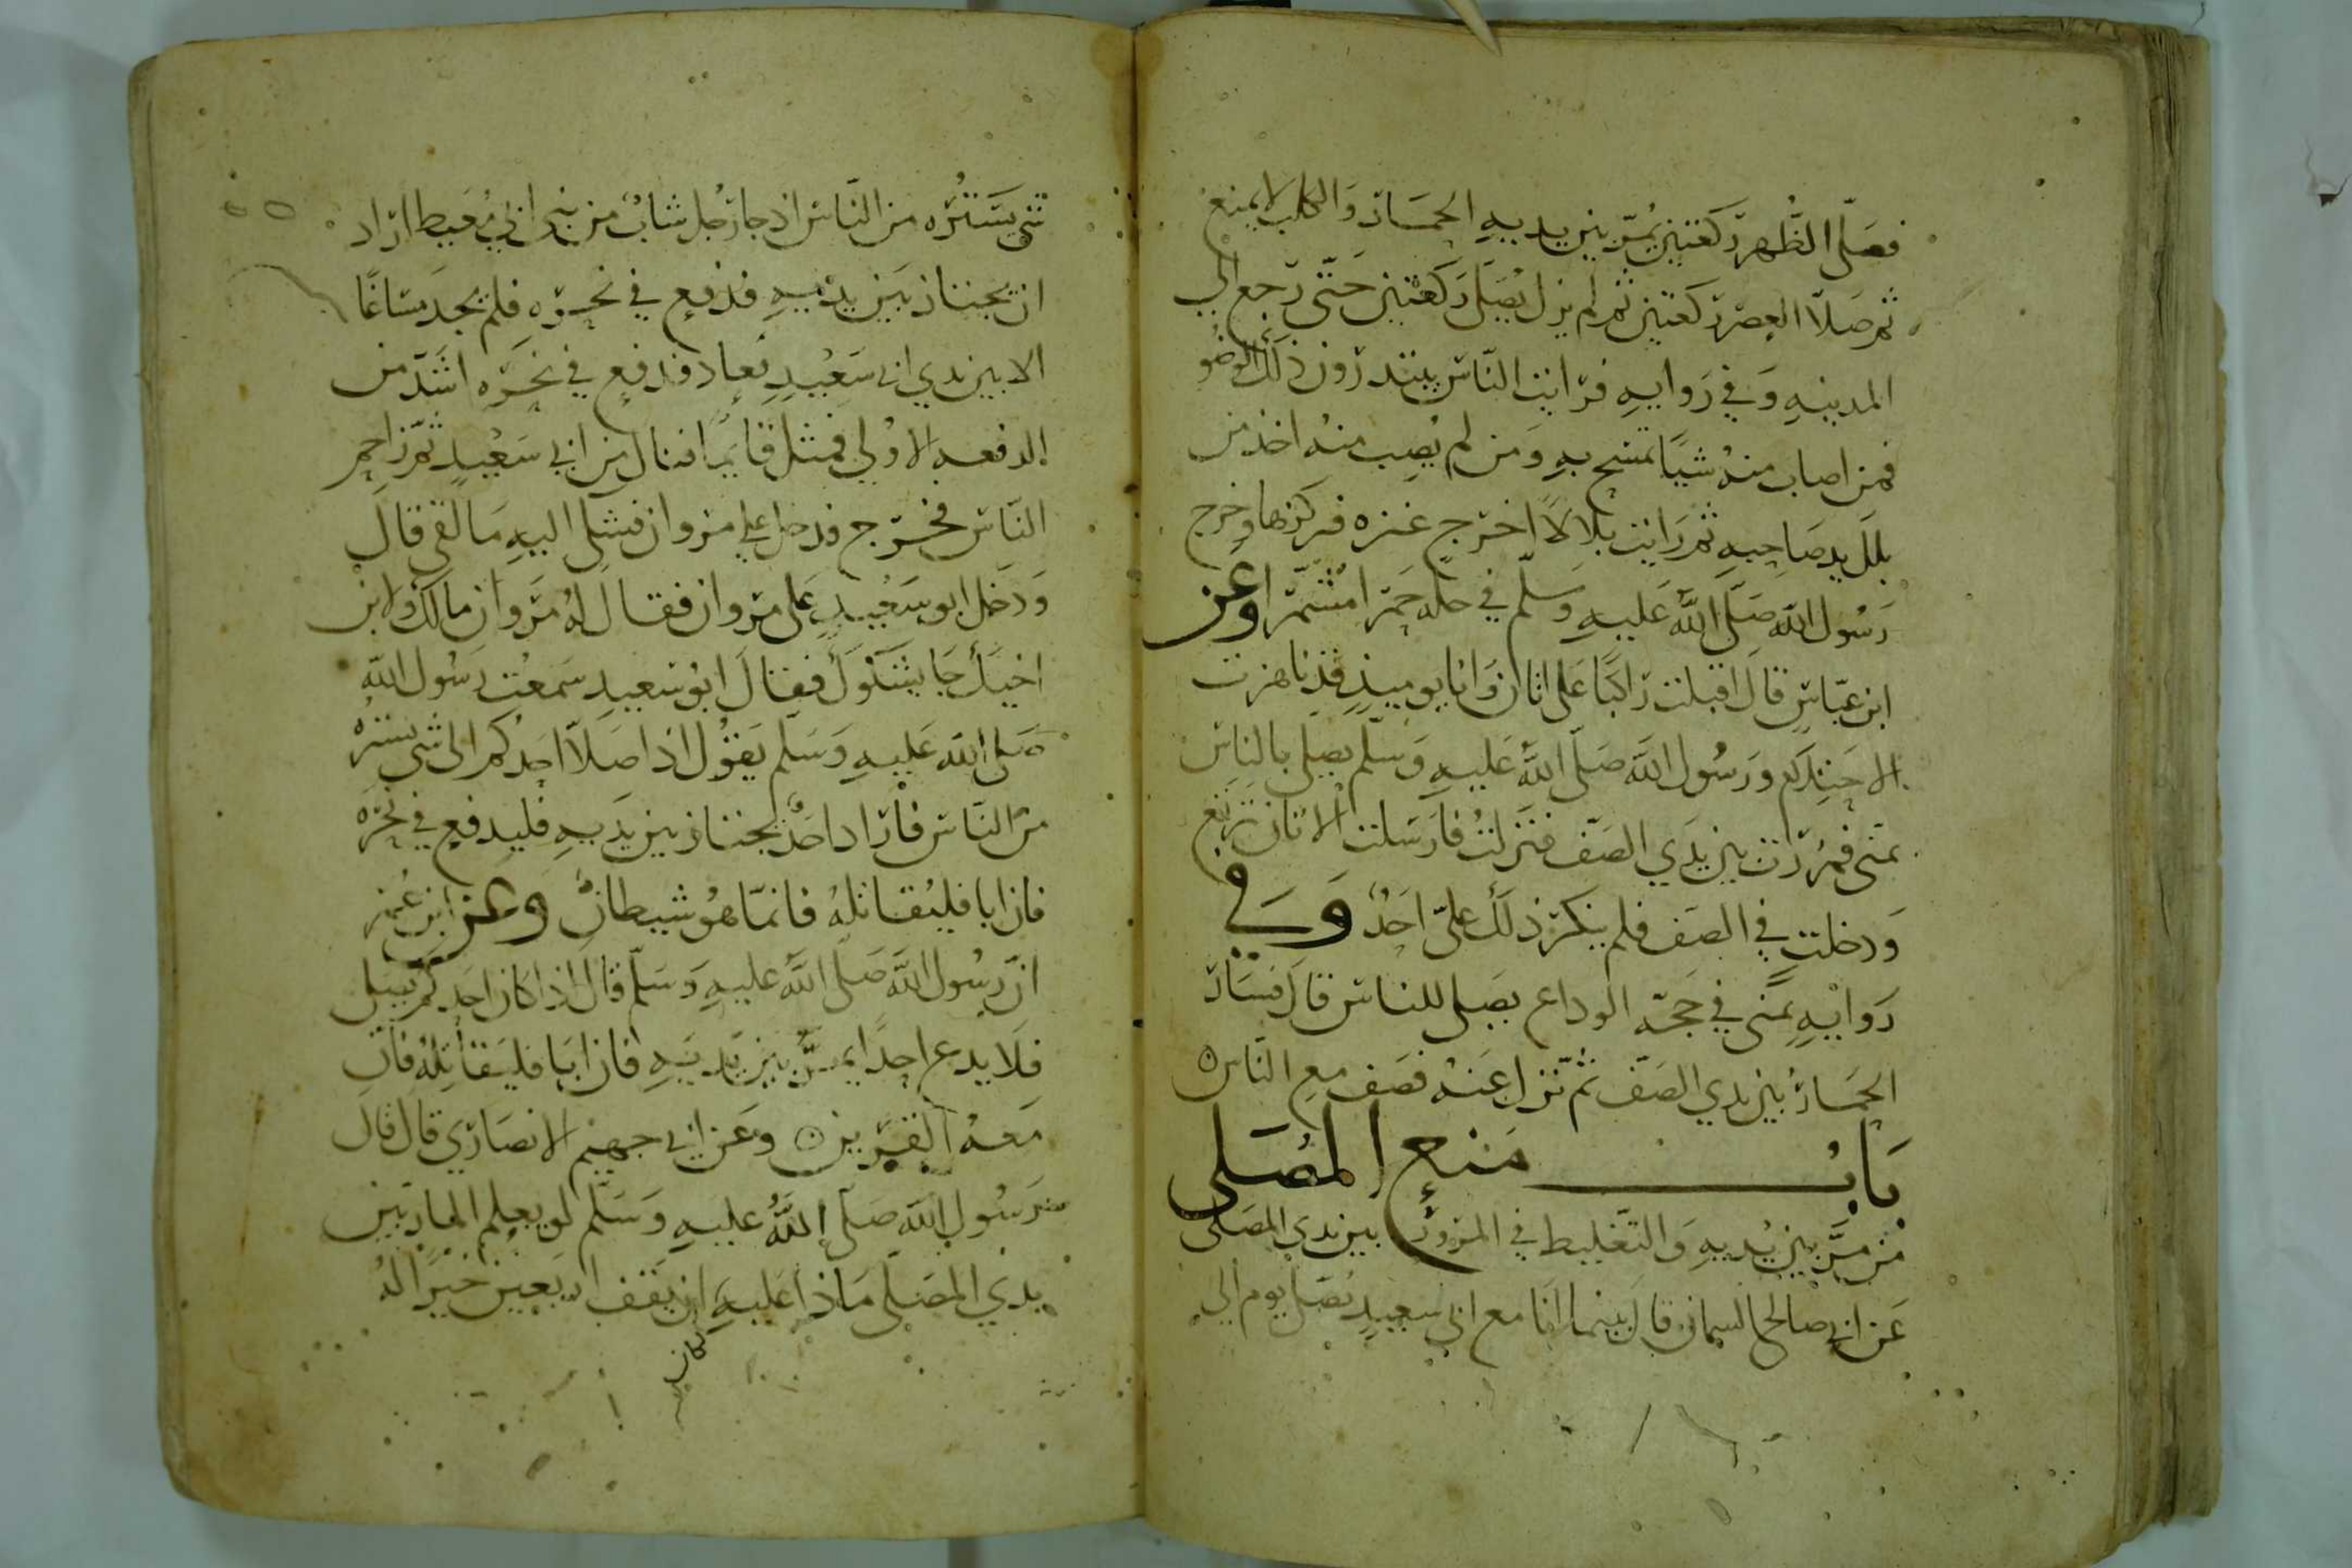 فصلّى الظهر ركعتين يمرّ بين يديه الحمار والكلب لا يمنع
ثم صلّا العصر ركعتين ثم لم يزل يُصلى ركعتين حتّى رجع الى
المدينه وفي روايه فرايت الناس يبتدرون ذلك الوضو
فمن اصاب منه شيًا تمسّح به ومن لم يُصب منه اخذ من
بلل يد صاحبه ثم رايت بلالاً اخرج عنزه فركزها وخرج
رسُول الله صلّى الله عليه وسلّم في حله حمرا مشمّرا وعن
ابن عبّاسٍ قال اقبلت راكبًا على اتان وانا يوميذٍ قد ناهزت
الاحتلام ورسُول الله صلّى الله عليه وسلّم يصلى بالناس
بمنى فمررت بين يدي الصّف فنزلتُ فارسلت الاتان ترتع
ودخلت في الصف فلم ينكر ذلك علىّ احدٌ وفي
روايهٍ بمنى في حجّه الوداع يصلى للناس قال فسار
الحمارُ بين يدي الصّف ثم نزل عنه فصَف مع النّاس ه
بابُ منع المصلى
من مرّ بين يديه والتغليط في المرور بين يدى المصلى
عن ابى صالح السمان قال بينما انا مع ابى سعيدٍ نصلى يوم الى
شى يستتُره من النّاس اذ جا رجل شابٌ من بنى ابي مُعيط اراد
ان يجتاز بين يديه فدفع في نحره فلم يجد مساغًا
الا بين يدي ابى سَعيدٍ فعاد فدفع في نحره اشدّ من
الدفعه الاولي فمثل قايمًا فنال من ابي سَعيدٍ ثم زاحم
النّاس فخرج فدخل علي مروان فشكى اليه ما لقى قال
ودخل ابو سعيدٍ على مروان فقال له مروان مالك ولابن
اخيك جا يشكوك فقال ابو سعيدٍ سمعت رسُول الله
صلى الله عليه وسلّم يقول اذا صلّا احدكم الى شى يستره
من النّاس فاراد احدٌ يجتاز بين يديه فليدفع في نحره
فان ابا فليُقاتلهُ فانمّا هُو شيطانٌ وعن ابن عُمر
انّ رسُول الله صلّى الله عليه وسلّم قال اذا كان احدكم يصلى
فلا يدع احدًا يمرُّ بين يديه فان ابا فليقاتلهُ فان
معه القرين ه وعن ابي جهيم الانصاري قال قال
رسُول الله صلّى الله عليه وسلّم لو يعلم المار بين
يدي المصلى ماذا عليه ان يقف اربعين خيرًا لهُ
كان